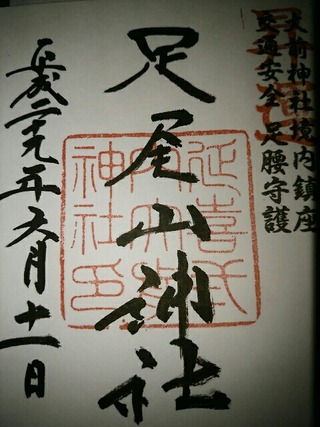 大前神社境内鎮座
交通安全 足腰守護
足尾山神社
平成二十九年六月十一日
延喜式
内大前
神社印